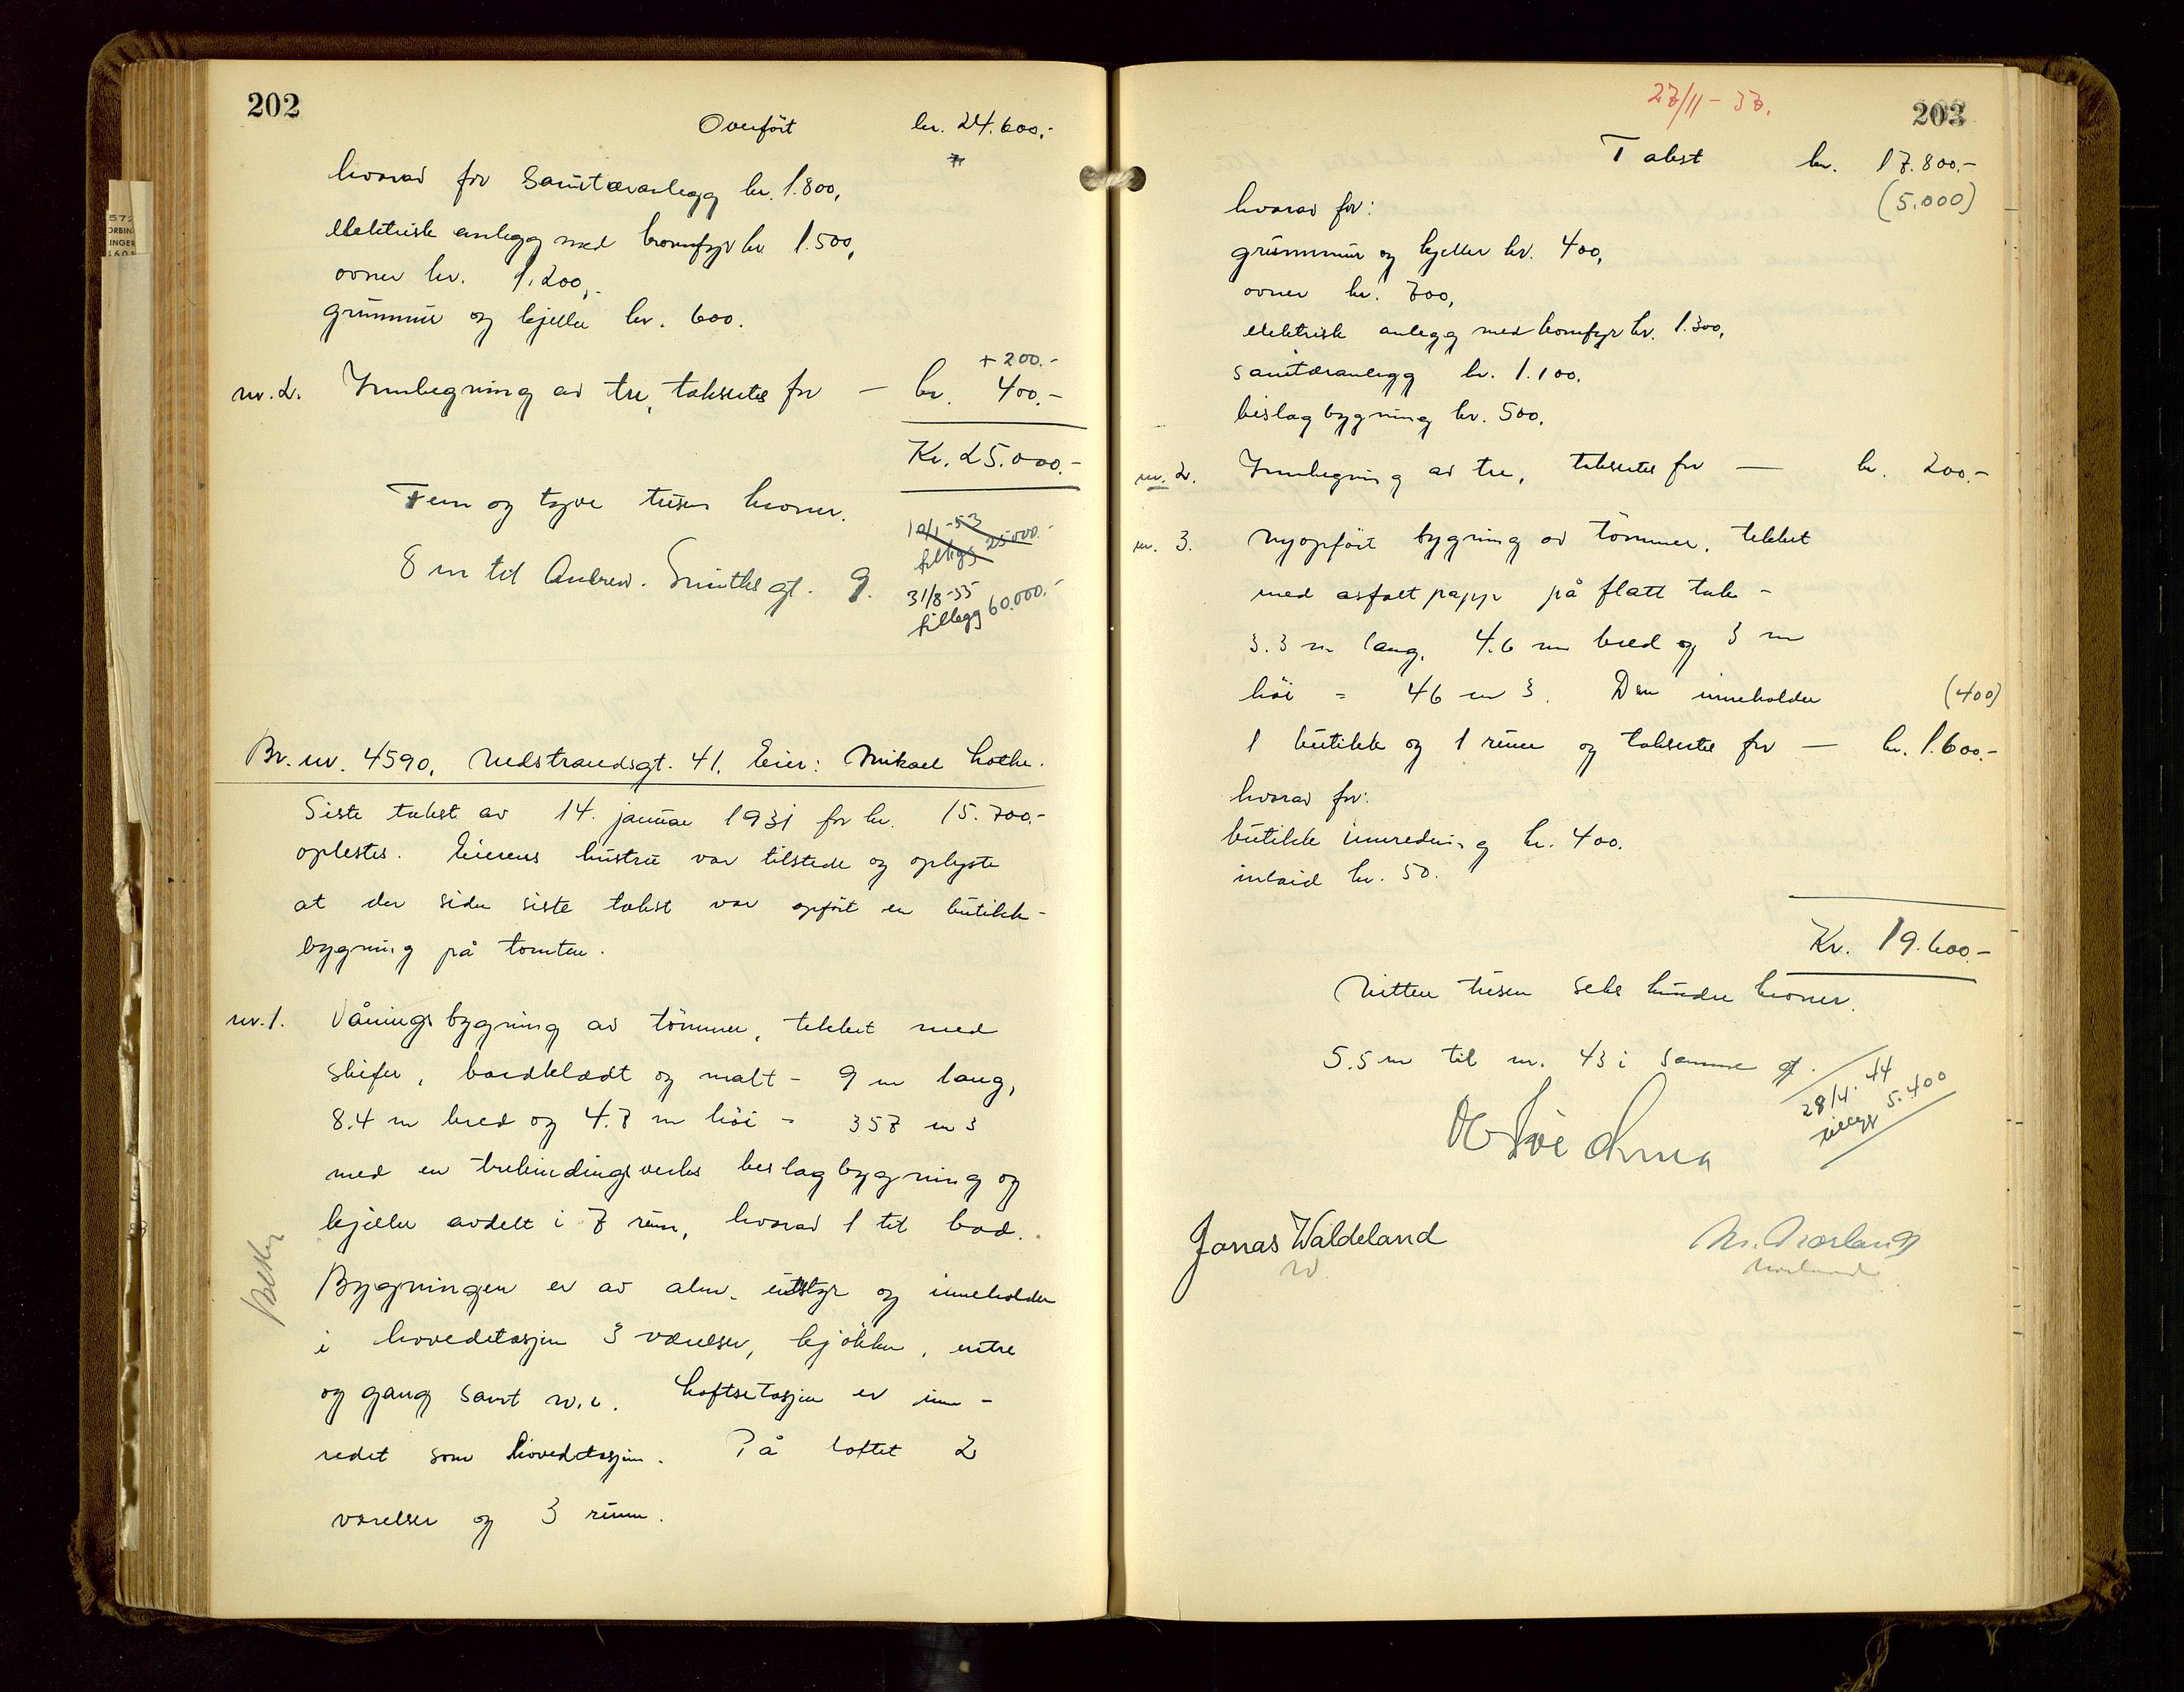 202
Overført kr. 24.600,-
hvorav for Sanitæranlegg kr. 1.800,
elektrisk anlegg med komfyr kr. 1.500,
ovner kr. 1.200,-
grunnmur og kjeller kr. 600.
+ 200.-
nr. 2. Innhegning av tre, takseres for — kr. 400.-
Kr. 25.000.-
Fem og tyve tusen kroner.
8 m til Andrew. Smithsgt. 9.
19/1-53
tillegg 25000.-
31/8-55
tillegg 60.000.-
Br. nr. 4590, Nedstrandsgt. 41. Eier: Mikael Lothe.
Siste takst av 14. januar 1931 for kr. 15.700.-
oplestes. Eierens hustru var tilstede og oplyste
at der siden siste takst var opført en butikk-
bygning på tomten.
nr. 1. Våningsbygning av tømmer, tekket med
skifer, bordklædt og malt - 9 m lang,
8.4 m bred og 4.7 m høi = 357 m3
med en trebindingsverks beslagbygning og
kjeller avdelt i 7 rum, hvorav 1 til bad.
Bygningen er av alm. utstyr og inneholder
i hovedetasjen 3 værelser, kjøkken, entre
og gang samt w.c. Loftsetasjen er inn-
redet som hovedetasjen. På loftet 2
værelser og 3 rum.
27/11-37.
203
Takst kr. 17.800.-
(5.000)
hvorav for:
grunnmur og kjeller kr. 400,
ovner kr. 700,
elektrisk anlegg med komfyr kr. 1.300,
sanitæranlegg kr. 1.100.
bislagbygning kr. 500.
nr. 2. Innhegning av tre, takseres for — kr. 200.-
nr. 3. Nyopført bygning av tømmer, tekket
med asfaltpapp på flatt tak -
3.3 m lang, 4.6 m bred og 3 m
høi = 46 m3. Den inneholder (400)
1 butikk og 1 rum og takseres for — kr. 1.600.-
hvorav for:
butikkinnredning kr. 400.
inlaid kr. 50.
Kr. 19.600.-
Nitten tusen seks hundre kroner.
5.5 m til nr. 43 i samme gt.
28/4. 44
tillegg 5.400
Jonas Waldeland